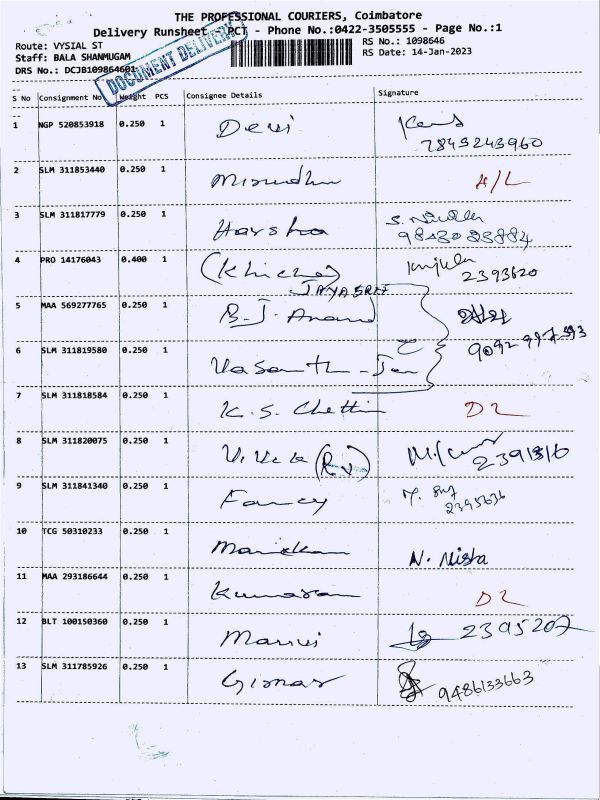 THE PROFESSIONAL COURIERS, Coimbatore
Delivery Runsheet - PCT - Phone No.:0422-3505555 - Page No.:1
Route: VYSIAL ST
RS No.: 1098646
Staff: BALA SHANMUGAM
RS Date: 14-Jan-2023
DRS No.: DCJB109864601
DOCUMENT DELIVERY
S No Consignment No Weight PCS Consignee Details Signature
1 NGP 520853918 0.250 1 Devi
7845243960
2 SLM 311853440 0.250 1 A/L
3 SLM 311817779 0.250 1 Harsha S.
9843023884
4 PRO 14176043 0.400 1
2393620
JAYASREE
5 MAA 569277765 0.250 1 B.J. Anand
9092 997 393
6 SLM 311819580 0.250 1 Vasanth - Jan
7 SLM 311818584 0.250 1 K.S. Chettin D2
8 SLM 311820075 0.250 1 Vivek
2391316
9 SLM 311841340 0.250 1 Fancy
2395636
10 TCG 50310233 0.250 1 N. Nisha
11 MAA 293186644 0.250 1 Kumaran D2
12 BLT 100150360 0.250 1 2395207
13 SLM 311785926 0.250 1 9486133663